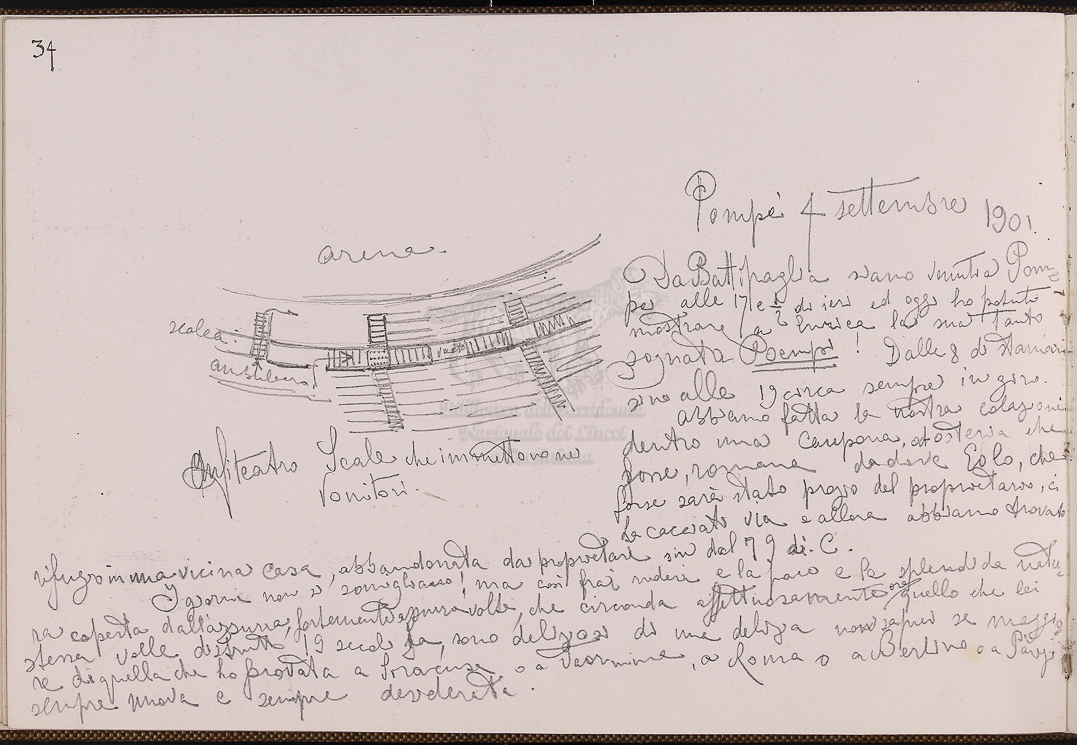 34
Pompei 4 settembre 1901.
arena.
scalea.
ambulacro
vuoto
Anfiteatro Scale che immettono nei
Vomitori.
Da Battipaglia siamo venuti a Pom-
pei alle 17 e ½ di ieri ed oggi ho potuto
mostrare a Enrica la sua tanto
sognata Pompei! Dalle 8 di stamani
sino alle 19 circa sempre in giro.
Abbiamo fatta la nostra colazione
dentro una caupona, od osteria che
fosse, romana da dove Eolo, che
forse sarà stato prozio del proprietario, ci
ha cacciati via e allora abbiamo trovato
rifugio in una vicina casa, abbandonata dai proprietari sin dal 79 d. C.
I giorni non si somigliano! ma così fra i ruderi e la pace e la splendida natu-
ra coperta dall'azzurra, fortemente azzurra volta, che circonda affettuosamente ora quello che lei
stessa volle distrutto 19 secoli fa, sono deliziosi di una delizia non saprei se maggio-
re di quella che ho provata a Siracusa o a Taormina, a Roma o a Berlino o a Parigi
sempre nuova e sempre desiderata.